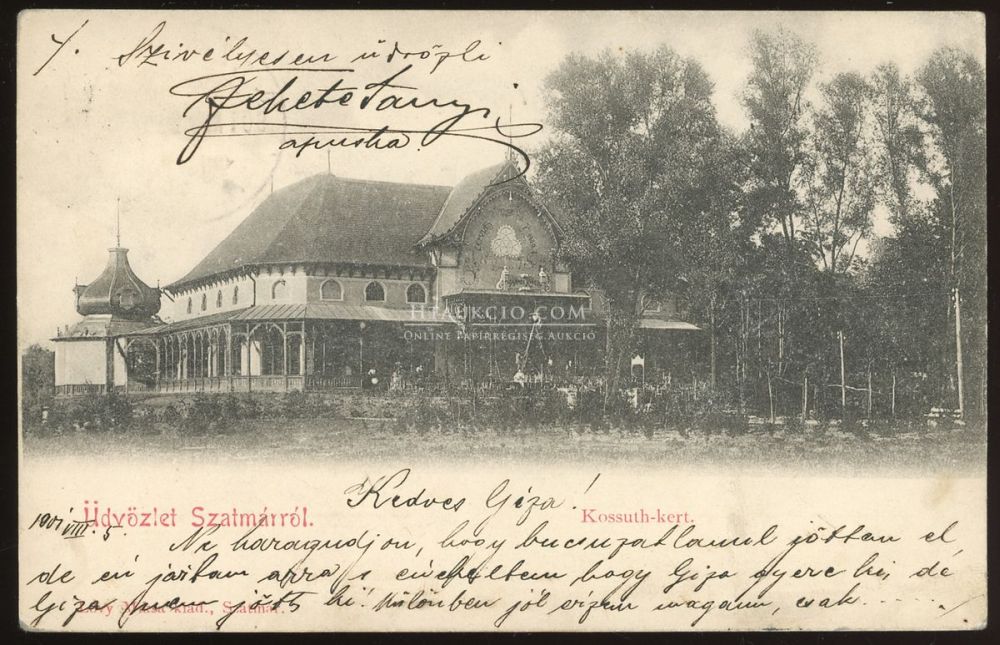 1.
Szivélyesen üdvözli
Fehete Tanny
apuska.
HFAUKCIO.COM
ONLINE PAPÍRRÉGISÉG AUKCIÓ
Kedves Giza!
Üdvözlet Szatmárról.
Kossuth-kert.
1901 VIII. 5.
Ne haragudjon, hogy bucsuzatlanul jöttem el
de én jártam arra s énekeltem hogy Giza gyere ki, de
Giza nem jött ki! Különben jól érzem magam, csak.....
kiad., Szatmár.